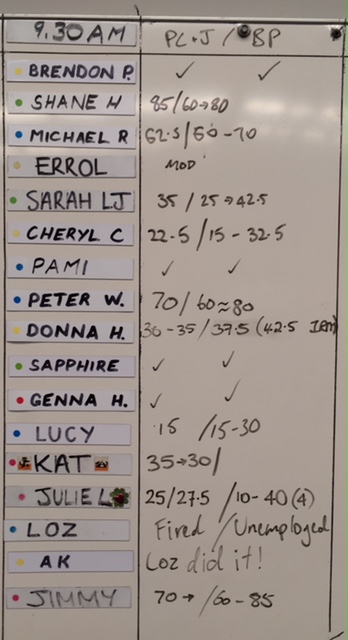 9.30AM PC+J / BP
BRENDON P. ✓ ✓
SHANE H 85/60→80
MICHAEL R 62.5/50-70
ERROL MOD
SARAH LJ 35 / 25→42.5
CHERYL C 22.5/15-32.5
PAMI ✓ ✓
PETER W. 70/60≈80
DONNA H. 30-35/37.5 (42.5
SAPPHIRE ✓ ✓
GENNA H. ✓ ✓
LUCY 15 /15-30
KAT 35→30/
JULIE L 25/27.5 /10-40(4)
LOZ Fired / Unemployed
AK Loz did it!
JIMMY 70→/60-85